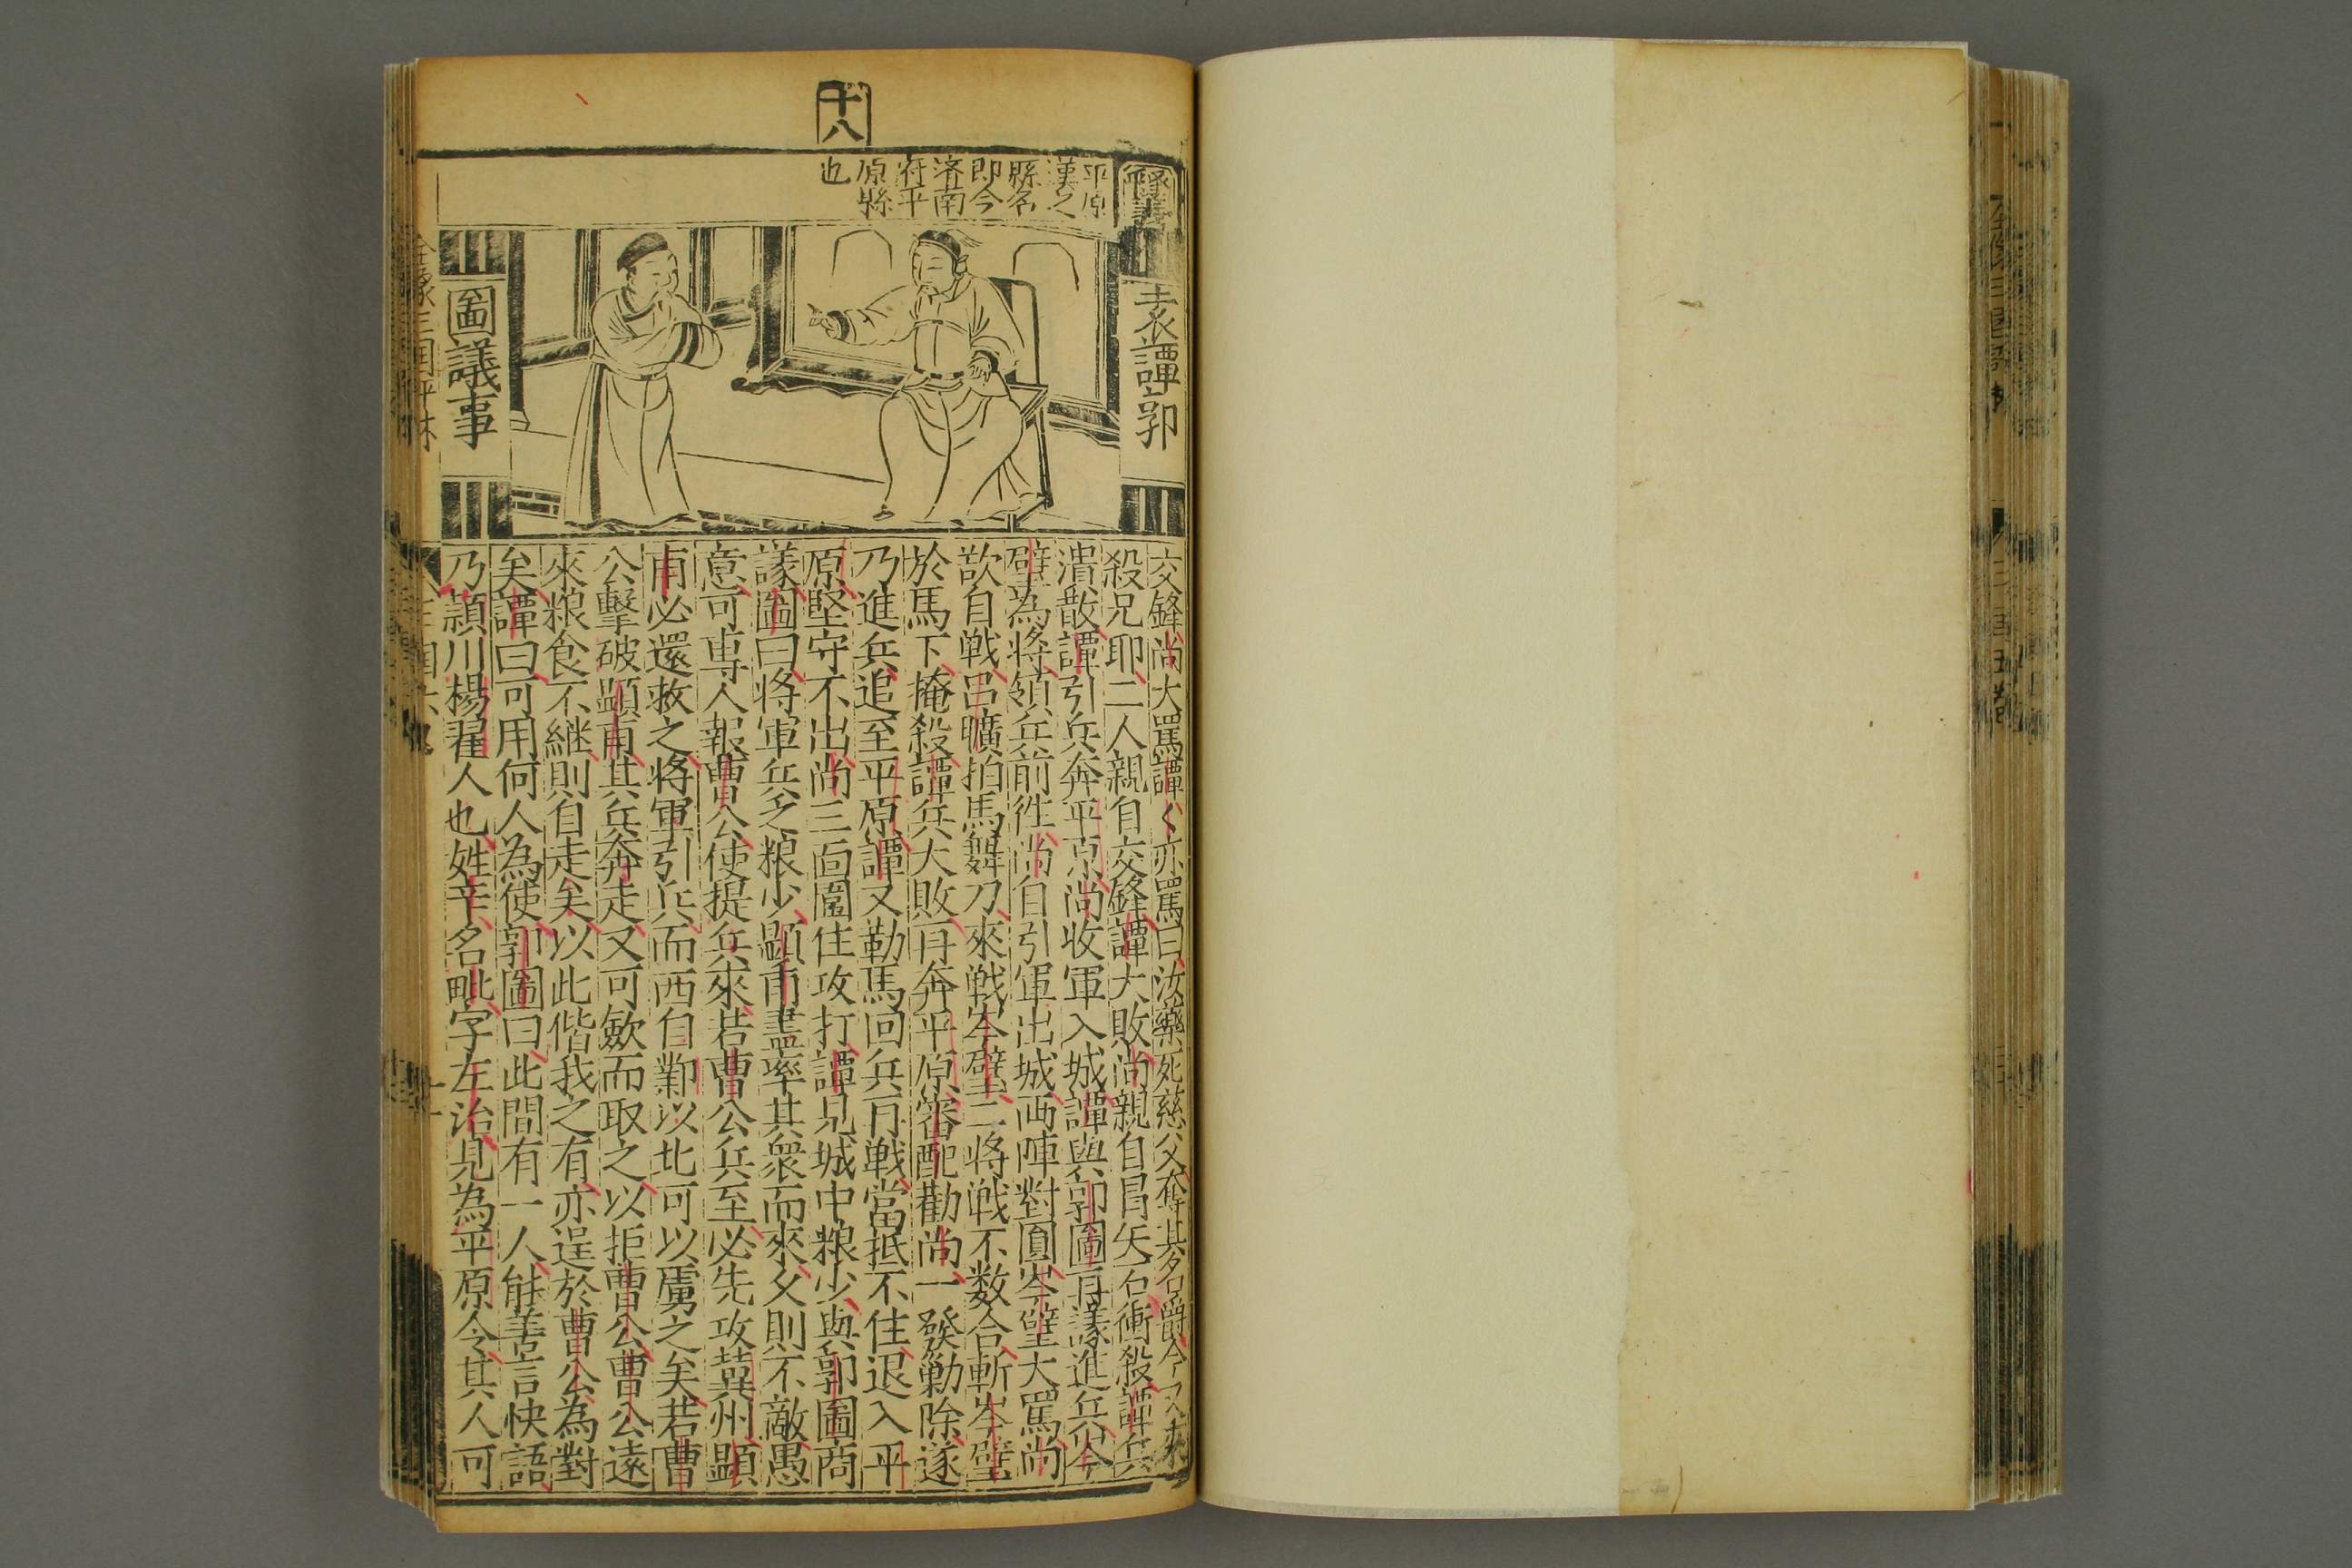 十八
釋義
平原
漢之
縣名
即今
濟南
府平
原縣
也
袁譚郭
圖議事
交鋒尚大罵譚〻亦罵曰汝藥死慈父奪其名爵今又來
殺兄耶二人親自交鋒譚大敗尚親自冒矢石衝殺譚兵
潰散譚引兵奔平原尚收軍入城譚與郭圖再議進兵令岑
璧為將領兵前徃尚自引軍出城兩陣對圓岑璧大罵尚
欲自戦吕曠拍馬舞刀來戦岑璧二將戦不数合斬岑璧
於馬下掩殺譚兵大敗再奔平原審配勸尚一發勦除遂
乃進兵追至平原譚又勒馬回兵再戦當抵不住退入平
原堅守不出尚三面圍住攻打譚見城中粮少與郭圖商
議圖曰將軍兵乏粮少顯甫盡率其衆而來久則不敵愚
意可專人報曹公使提兵來若曹公兵至必先攻冀州顯
甫必還救之將軍引兵而西自鄴以北可以虜之矣若曹
公擊破顯甫其兵奔走又可歛而取之以拒曹公曹公遠
來粮食不継則自走矣以此偕我之有亦逞於曹公為對
矣譚曰可用何人為使郭圖曰此間有一人能善言快語
乃頴川楊翟人也姓辛名毗字左治見為平原令其人可
全像三国評林